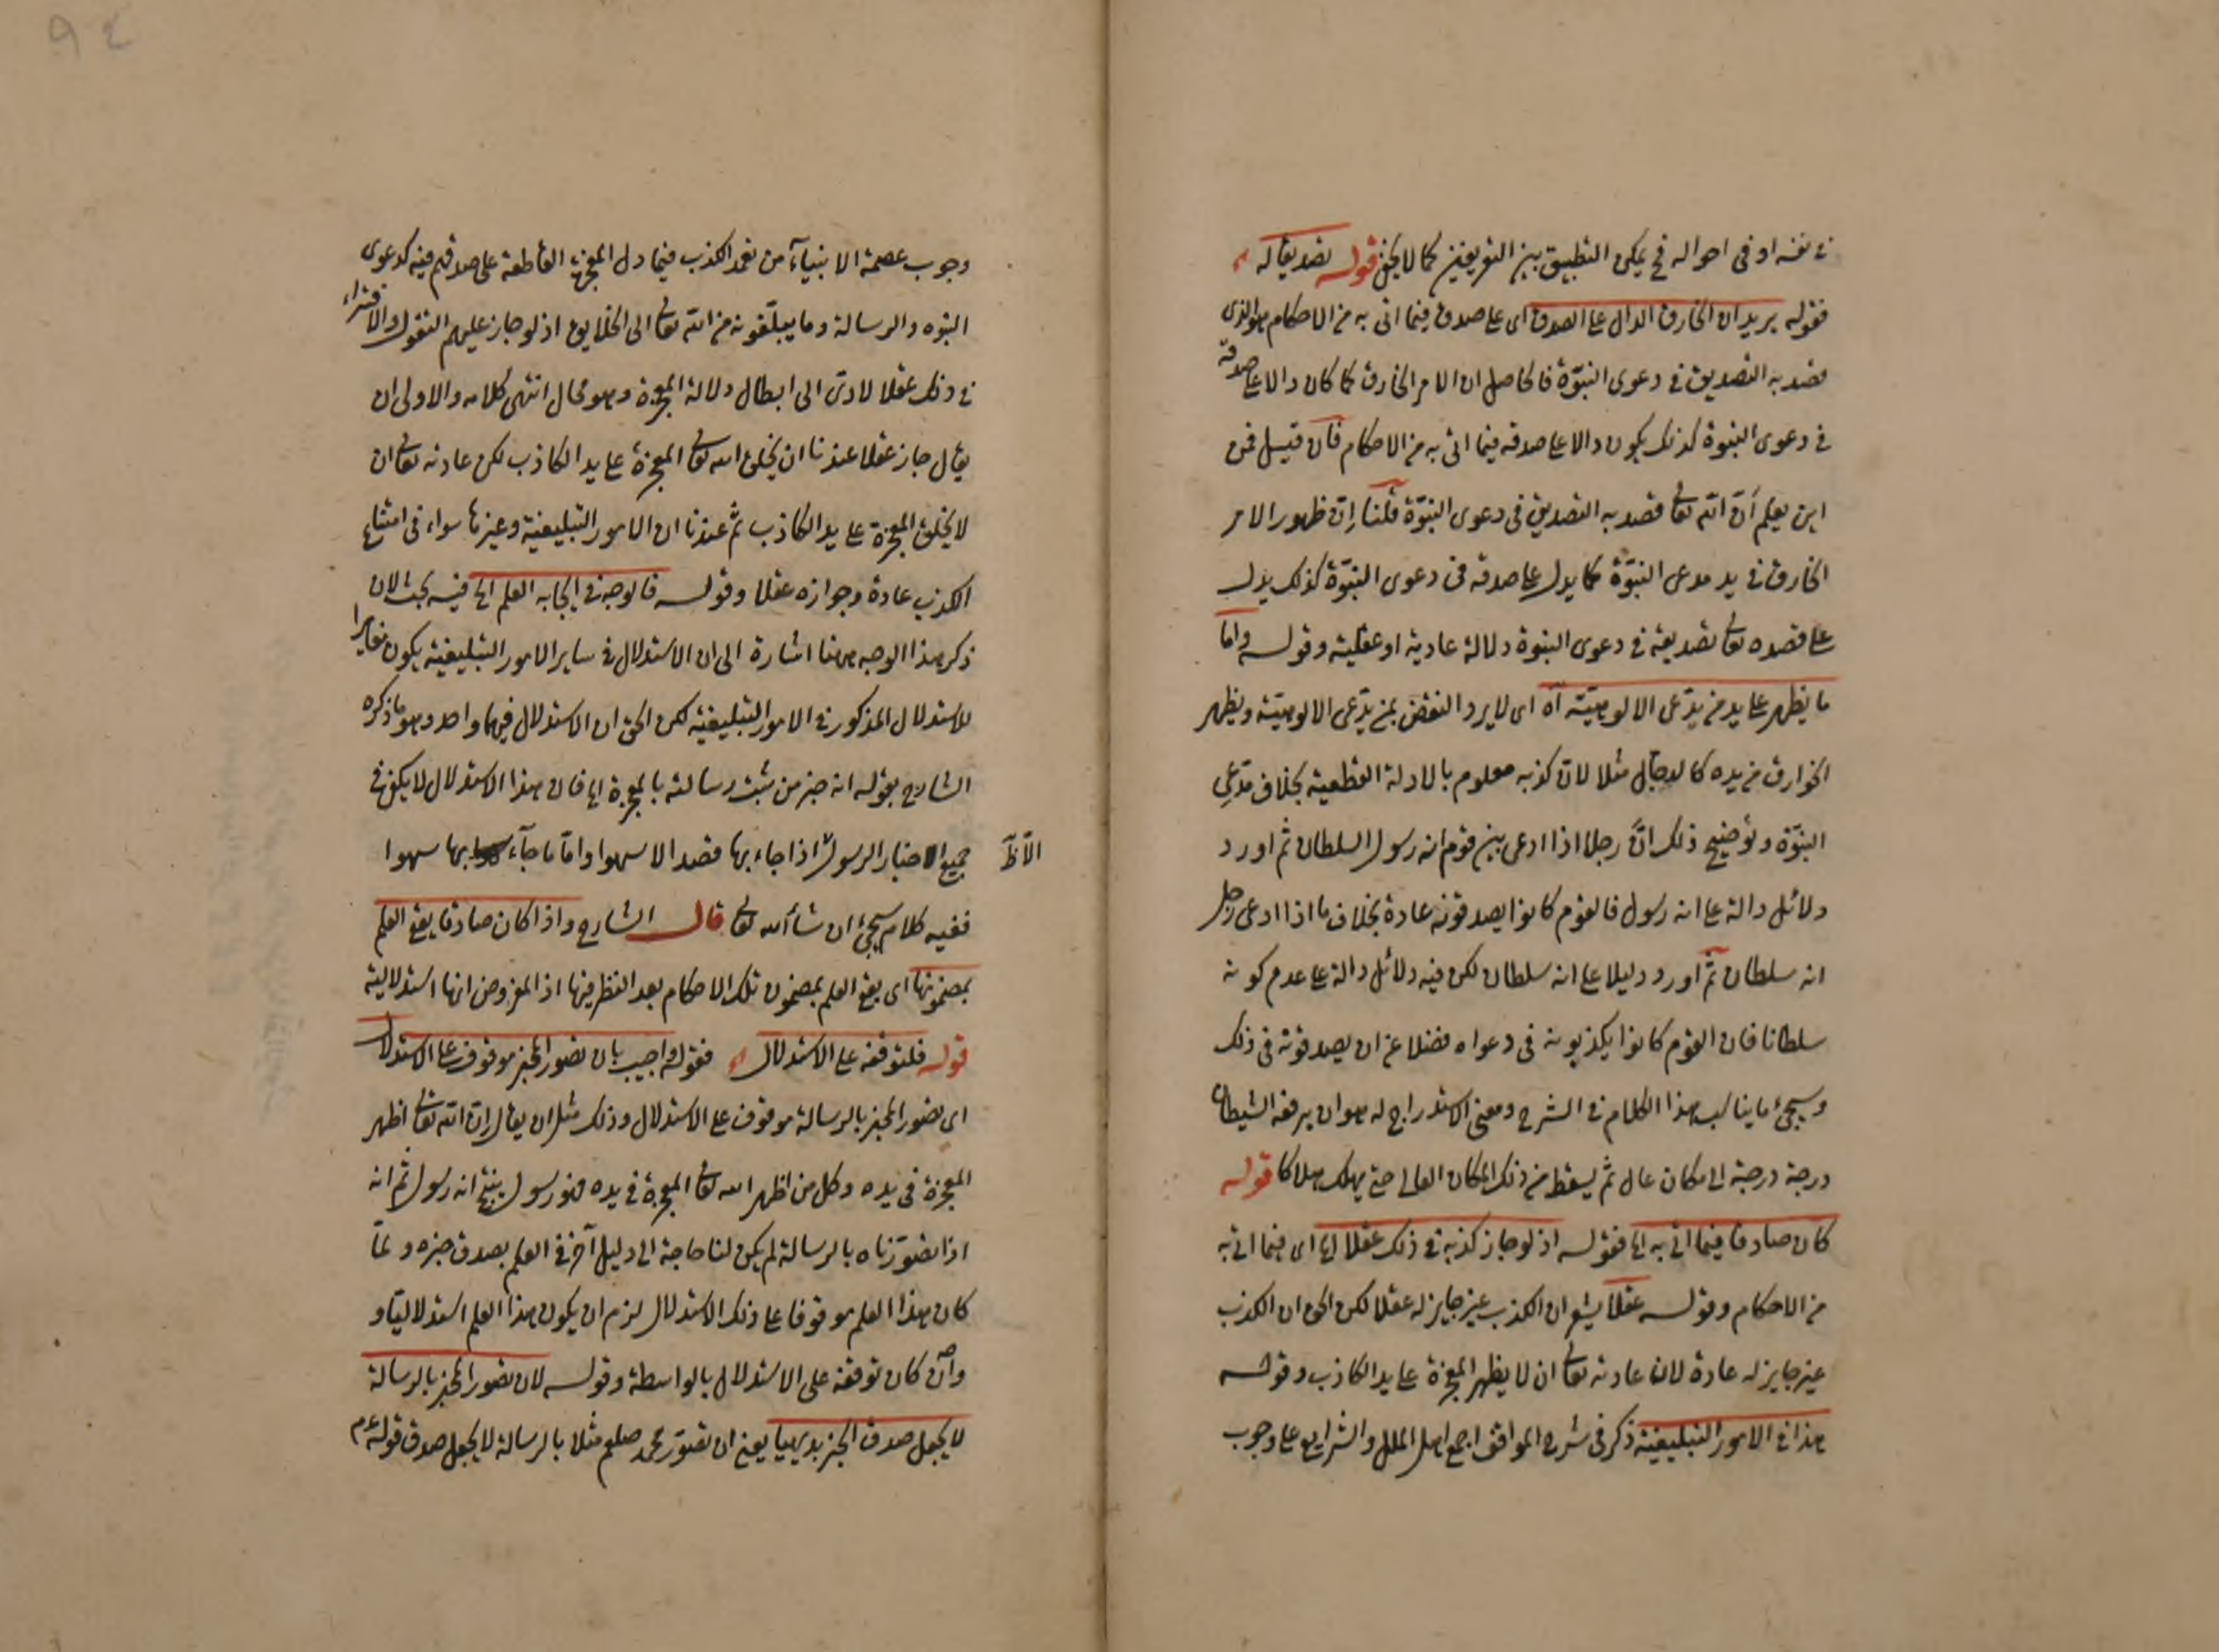 في نفسه او في احواله فح يمكن التطبيق بين التعريفين كما لا يخفى قوله تصديقا له اه
فقوله يريد ان الخارق الدال على الصدق اى على صدق فيما اتى به من الاحكام هو الذى
قصد به التصديق في دعوى النبوّة فالحاصل ان الامر الخارق كما كان دالا على صدقه
في دعوى النبوة كذلك يكون دالا على صدقه فيما اتى به من الاحكام فان قيل فمن
اين يعلم أنّ الله تعالى قصد به التصديق في دعوى النبوّة قلنا إنّ ظهور الامر
الخارق في يد مدعى النبوّة كما يدل على صدقه في دعوى النبوّة كذلك يدل
على قصده تعالى تصديقه في دعوى النبوة دلالة عادية او عقلية وقوله واما
ما يظهر على يد من يدّعى الالوهيّة اه اى لا يرد النقض بمن يدّعى الالوهيّة ويظهر
الخوارق من يده كالدجّال مثلا لانّ كذبه معلوم بالادلة القطعية بخلاف مدّعى
النبوّة وتوضيح ذلك انّ رجلا اذا ادعى بين قوم انه رسول السلطان ثم اورد
دلائل دالة على انه رسول فالقوم كانوا يصدقونه عادة بخلاف ما اذا ادعى رجل
انه سلطان ثمّ اورد دليلا على انه سلطان لكن فيه دلائل دالة على عدم كونه
سلطانا فان القوم كانوا يكذبونه في دعواه فضلا عن ان يصدقونه في ذلك
وسيجئ ما يناسب هذا الكلام في الشرح ومعنى الاستدراج له هو ان يرفعه الشيطان
درجة درجة الى مكان عال ثم يسقط من ذلك المكان العالى حتى يهلك هلاكا قوله
كان صادقا فيما اتى به الخ فقوله اذ لو جاز كذبه في ذلك عقلا الخ اى فيما اتى به
من الاحكام وقوله عقلا يشعر ان الكذب غير جايز له عقلا لكن الحق ان الكذب
غير جايز له عادة لان عادته تعالى ان لا يظهر المعجزة على يد الكاذب وقوله
هذا في الامور التبليغية ذكر في شرح المواقف اجمع اهل الملل والشرايع على وجوب
وجوب عصمة الانبيآء من تعمد الكذب فيما دل المعجزة القاطعة على صدقهم فيه كدعوى
النبوه والرسالة وما يبلّغونه من الله تعالى الى الخلايق اذ لو جاز عليهم التقول والافتراء
في ذلك عقلا لادى الى ابطال دلالة المعجزة وهو محال انتهى كلامه والاولى ان
يقال جاز عقلا عندنا ان يخلق الله تعالى المعجزة على يد الكاذب لكن عادته تعالى ان
لا يخلق المعجزة على يد الكاذب ثم عندنا ان الامور التبليغية وغيرها سواء في امتناع
الكذب عادة وجوازه عقلا وقوله فالوجه في ايجابه العلم الخ فيه بحث لان
ذكر هذا الوجه ههنا اشارة الى ان الاستدلال في ساير الامور التبليغية يكون مغايرا
للاستدلال المذكور في الامور التبليغية لكن الحق ان الاستدلال فيهما واحد وهو ما ذكره
الشارح بقوله انه خبر من ثبت رسالته بالمعجزة الخ فان هذا الاستدلال لا يكفى في
جميع الاخبار الرسول اذا جاء بها قصدا لا سهوا وامّا ما جآء بها سهوا
ففيه كلام سيجئ ان شاء الله تعالى قال الشارح واذا كان صادقا يقع العلم
بمضمونها اى يقع العلم بمضمون تلك الاحكام بعد النظر فيها اذ المفروض انها استدلالية
قوله فلتوقفه على الاستدلال اه فقوله واجيب بان تصور المخبر موقوف على الاستدلال
اى تصور المخبر بالرسالة موقوف على الاستدلال وذلك مثل ان يقال إنّ الله تعالى اظهر
المعجزة في يده وكل من اظهر الله تعالى المعجزة في يده فهو رسول ينتج انه رسول ثم انه
اذا تصوّرناه بالرسالة لم يكن لنا حاجة الى دليل آخر في العلم بصدق خبره ولمّا
كان هذا العلم موقوفا على ذلك الاستدلال لزم ان يكون هذا العلم استدلاليّا و
وان كان توقفه على الاستدلال بالواسطة وقوله لان تصور المخبر بالرسالة
لا يجعل صدق الخبر بديهيا يعنى ان تصوّر محمد صلعم مثلا بالرسالة لا يجعل صدق قوله عم